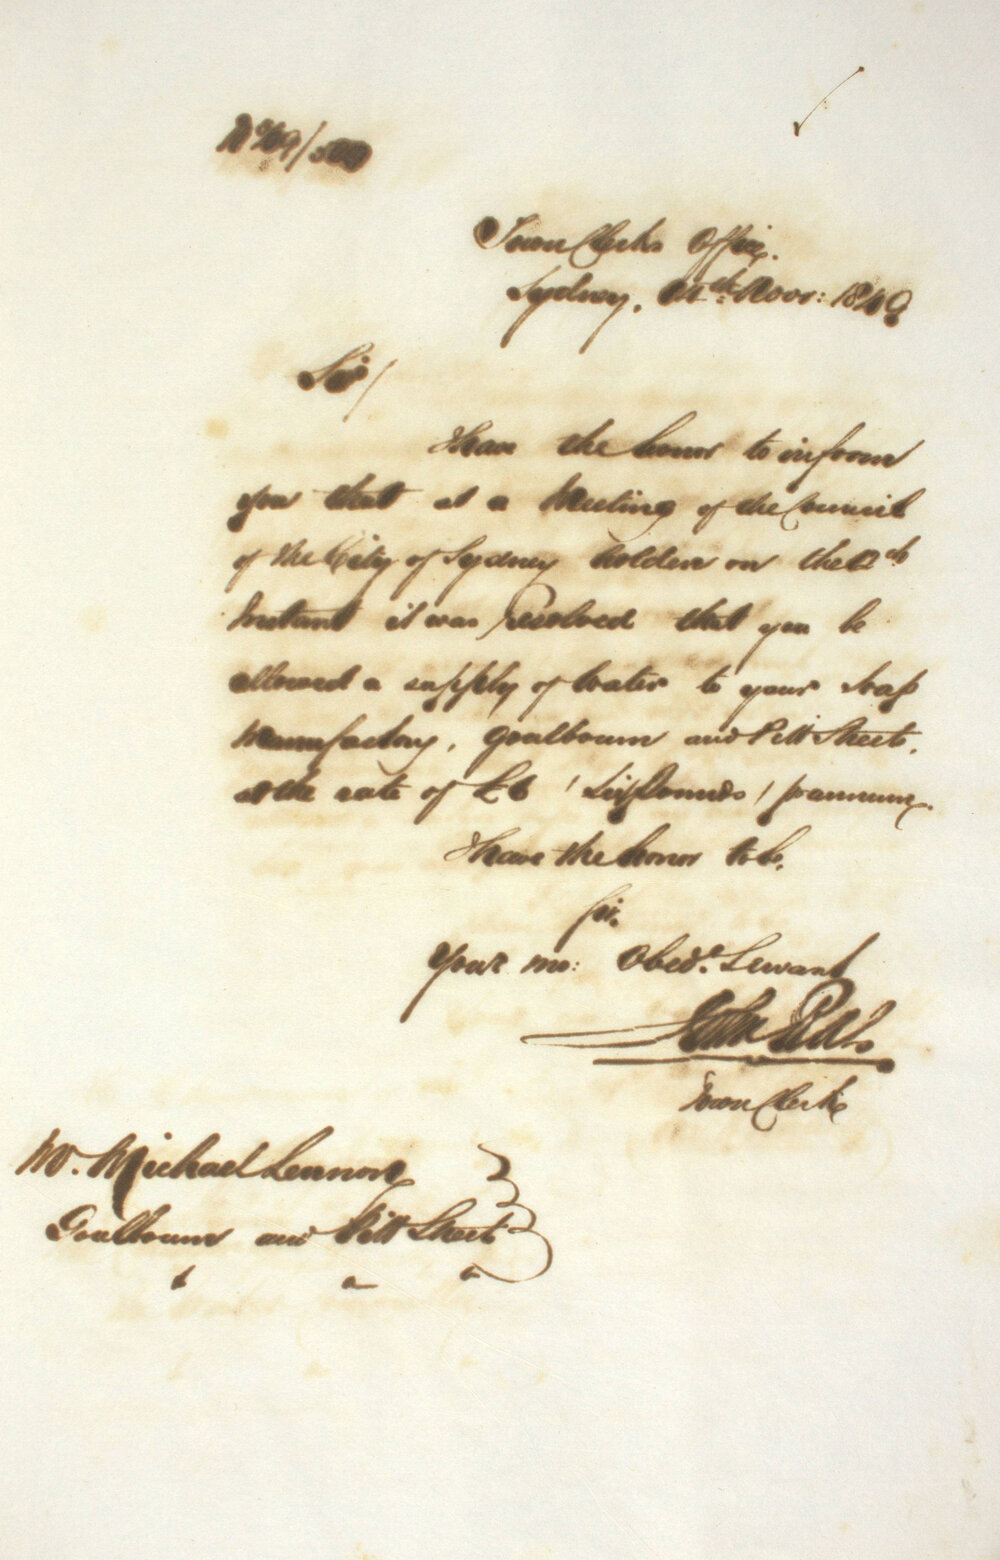 No 49/
Town Clerks Office,
Sydney, 14th Novr: 1849
Sir/
I have the honor to inform
you that at a Meeting of the Council
of the City of Sydney holden on the 12th
Instant it was resolved that you be
allowed a supply of water to your Soap
Manufactory, Goulbourn and Pitt Street,
at the rate of £6 (Six Pounds) pr annum.
I have the honor to be,
Sir,
Your mo: Obedt. Servant
John
Town Clerk
Mr. Michael Lennon
Goulbourn and Pitt Street